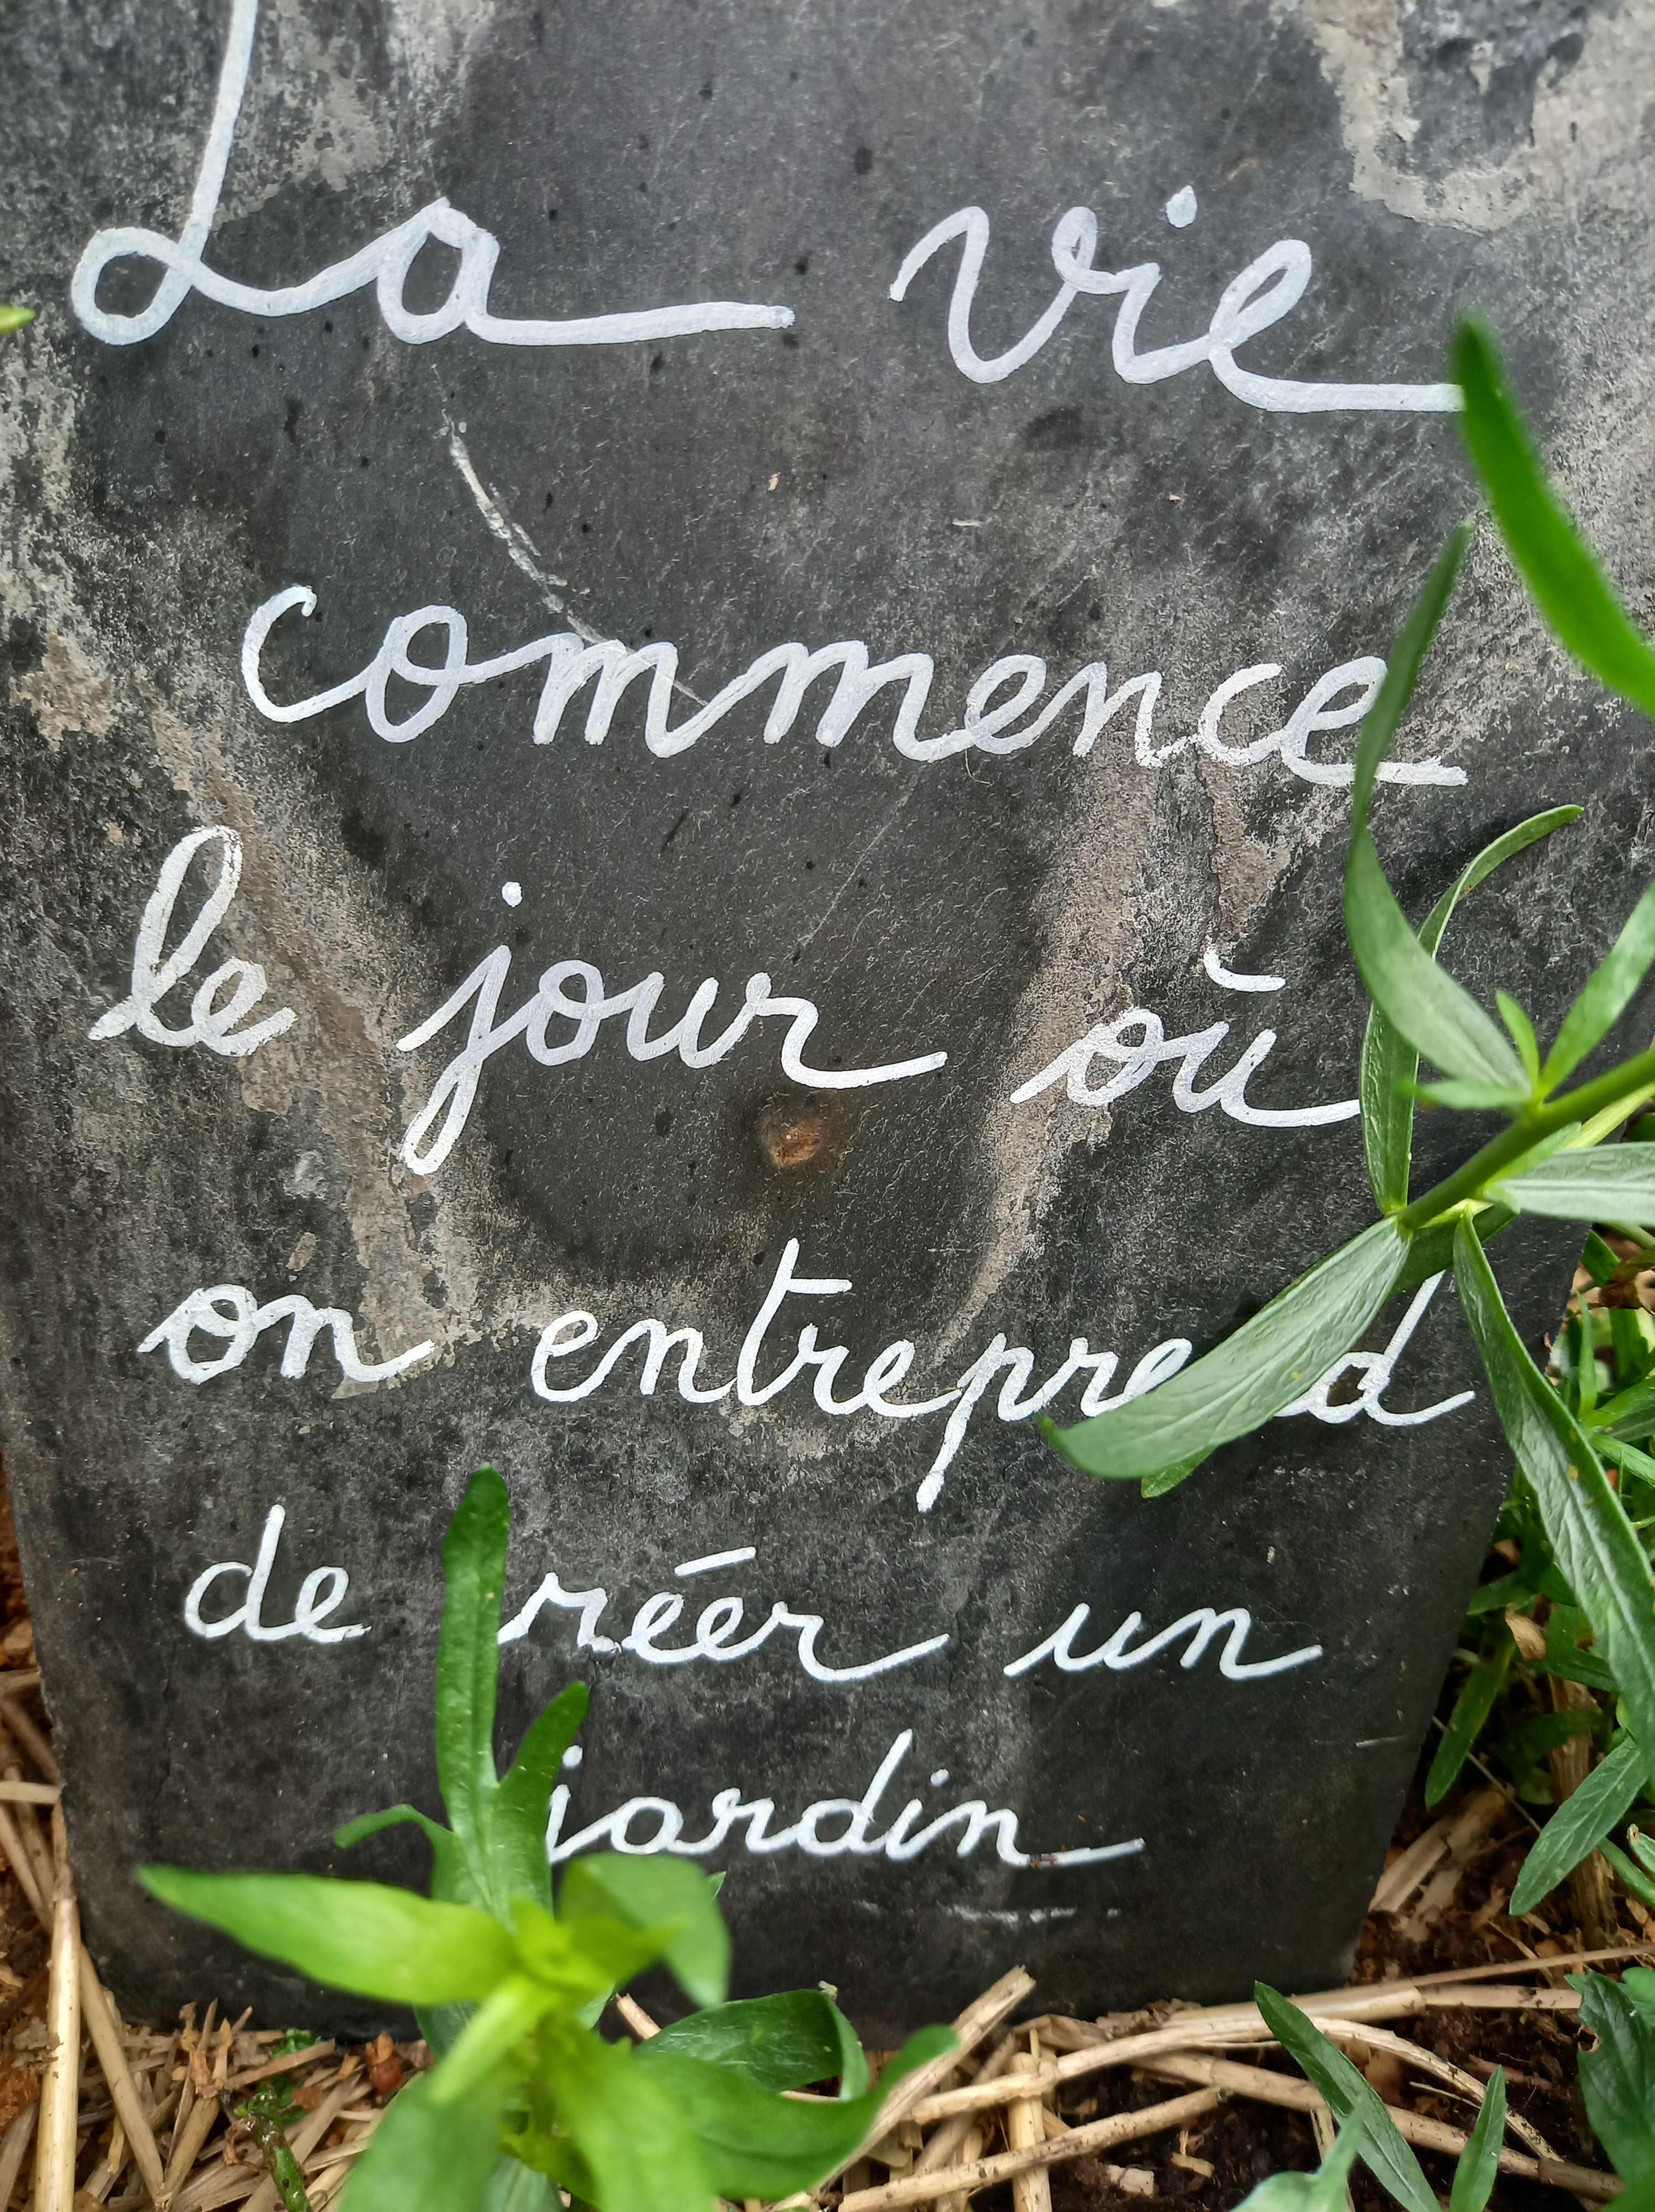 La vie
commence
le jour où
on entreprend
de créer un
jardin